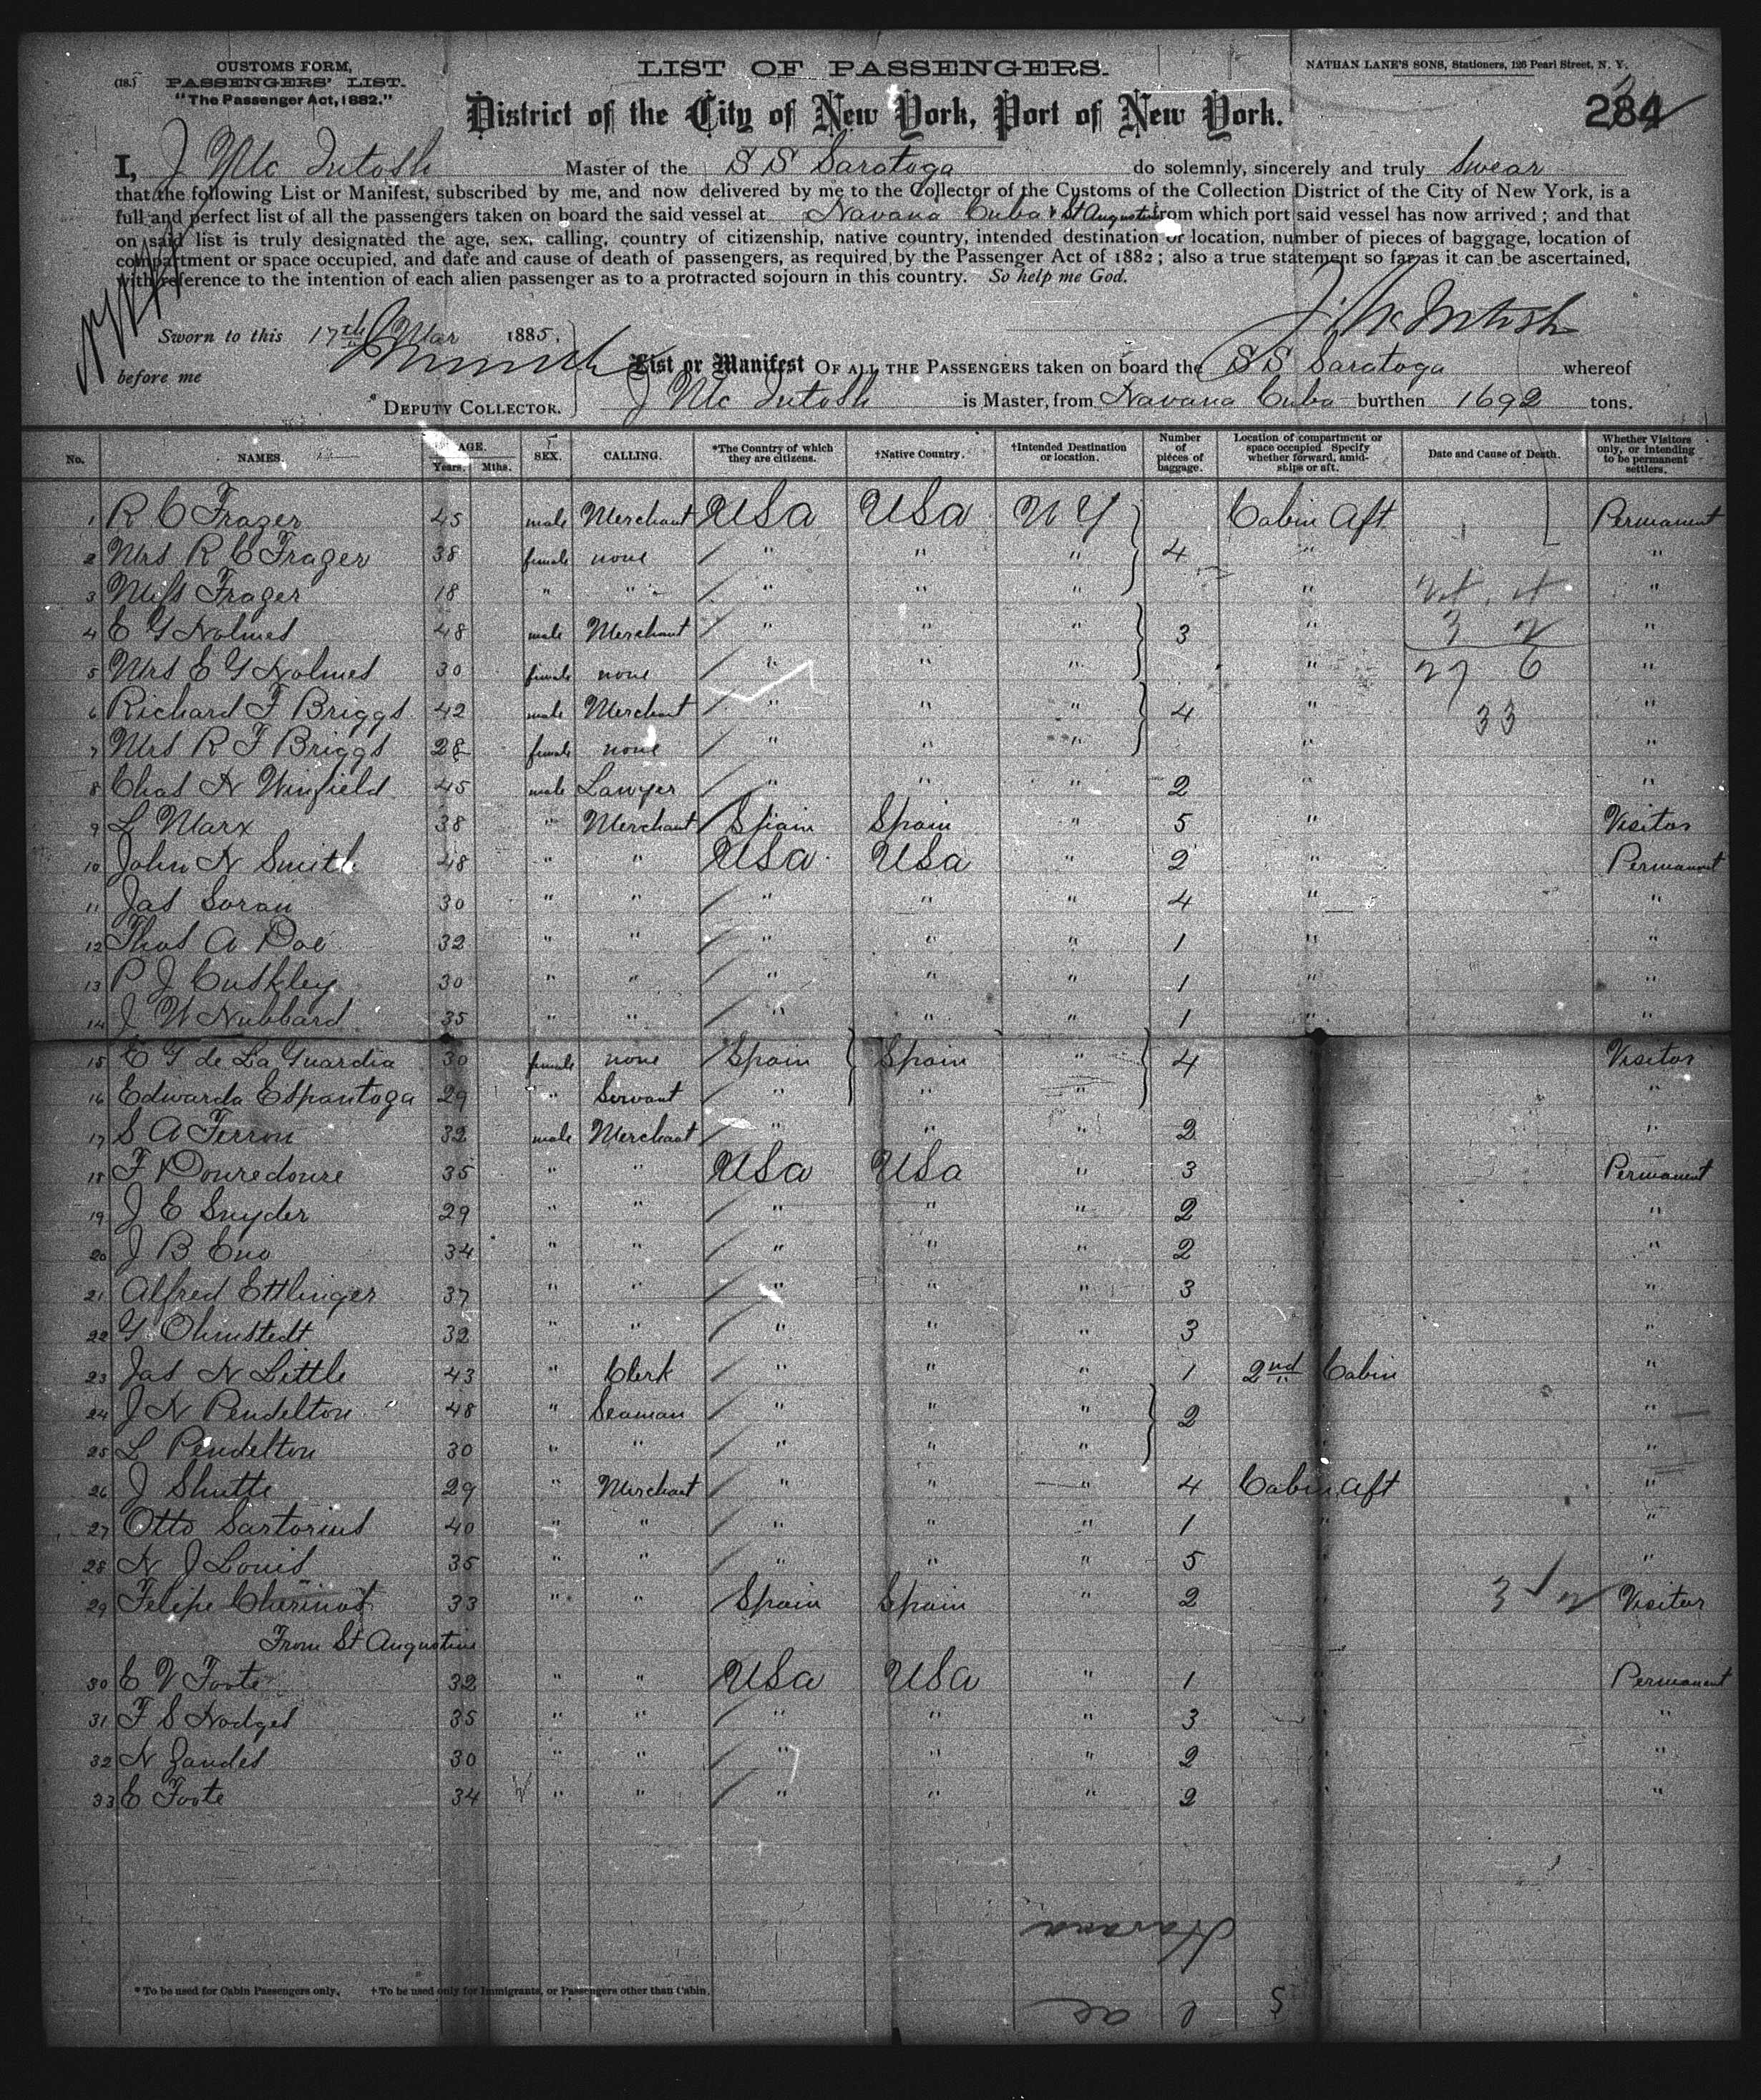 CUSTOMS FORM,
(18.) PASSENGERS' LIST.
"The Passenger Act, 1882."
LIST OF PASSENGERS.
NATHAN LANE'S SONS, Stationers, 126 Pearl Street, N. Y.
District of the City of New York, Port of New York.
284
I, J McIntosh Master of the S S Saratoga do solemnly, sincerely and truly swear
that the following List or Manifest, subscribed by me, and now delivered by me to the Collector of the Customs of the Collection District of the City of New York, is a
full and perfect list of all the passengers taken on board the said vessel at Havana Cuba & St Augustine from which port said vessel has now arrived; and that
on said list is truly designated the age, sex, calling, country of citizenship, native country, intended destination or location, number of pieces of baggage, location of
compartment or space occupied, and date and cause of death of passengers, as required by the Passenger Act of 1882; also a true statement so far as it can be ascertained,
with reference to the intention of each alien passenger as to a protracted sojourn in this country. So help me God.
J McIntosh
Sworn to this 17th Mar 1885,
before me
List or Manifest OF ALL THE PASSENGERS taken on board the S S Saratoga whereof
DEPUTY COLLECTOR. J McIntosh is Master, from Havana Cuba burthen 1692 tons.
No. NAMES. AGE. Years. Mths. SEX. CALLING. *The Country of which they are citizens. †Native Country. †Intended Destination or location. Number of pieces of baggage. Location of compartment or space occupied. Specify whether forward, amidships or aft. Date and Cause of Death. Whether Visitors only, or intending to be permanent settlers.
1 R C Frazer 45 male Merchant USA USA N Y Cabin Aft Permanent
2 Mrs R C Frazer 38 female none " " " 4 " "
3 Miss Frazer 18 " " " " " " "
4 E G Holmes 48 male Merchant " " " 3 " 3 2 "
5 Mrs E G Holmes 30 female none " " " " 27 6 "
6 Richard F Briggs 42 male Merchant " " " 4 " 33 "
7 Mrs R F Briggs 28 female none " " " " "
8 Chas H Winfield 45 male Lawyer " " " 2 " "
9 L Marx 38 " Merchant Spain Spain " 5 " Visitor
10 John H Smith 48 " " USA USA " 2 " Permanent
11 Jas Soran 30 " " " " " 4 " "
12 Thos A Poe 32 " " " " " 1 " "
13 P J Cuskley 30 " " " " " 1 " "
14 J W Hubbard 35 " " " " " 1 " "
15 E G de La Guardia 30 female none Spain Spain " 4 Visitor
16 Edwarda Espantoga 29 " Servant " " " "
17 S A Ferron 32 male Merchant " " " 2 "
18 F Douredoure 35 " " USA USA " 3 Permanent
19 J E Snyder 29 " " " " " 2 "
20 J B Eno 34 " " " " " 2 "
21 Alfred Ettlinger 37 " " " " " 3 "
22 G Ohmstedt 32 " " " " " 3 "
23 Jas H Little 43 " Clerk " " " 1 2nd Cabin "
24 J H Pendelton 48 " Seaman " " " 2 "
25 L Pendelton 30 " " " " " "
26 J Shutte 29 " Merchant " " " 4 Cabin Aft "
27 Otto Sartorius 40 " " " " " 1 " "
28 H J Louis 35 " " " " " 5 "
29 Felipe Cherinos 33 " " Spain Spain " 2 3 2 Visitor
From St Augustine
30 E V Foote 32 " " USA USA " 1 " Permanent
31 F S Hodges 35 " " " " " 3 "
32 H Zandes 30 " " " " " 2 " "
33 E Foote 34 " " " " " 2 " "
Havana
*To be used for Cabin Passengers only. †To be used only for Immigrants, or Passengers other than Cabin.